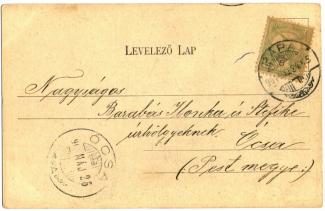 LEVELEZŐ LAP
PÁPA
Nagyságos
Barabás Ilonka és Stefike
úrhölgyeknek.
Ócsa
(Pest megye.)
ÓCSA
MÁJ 25